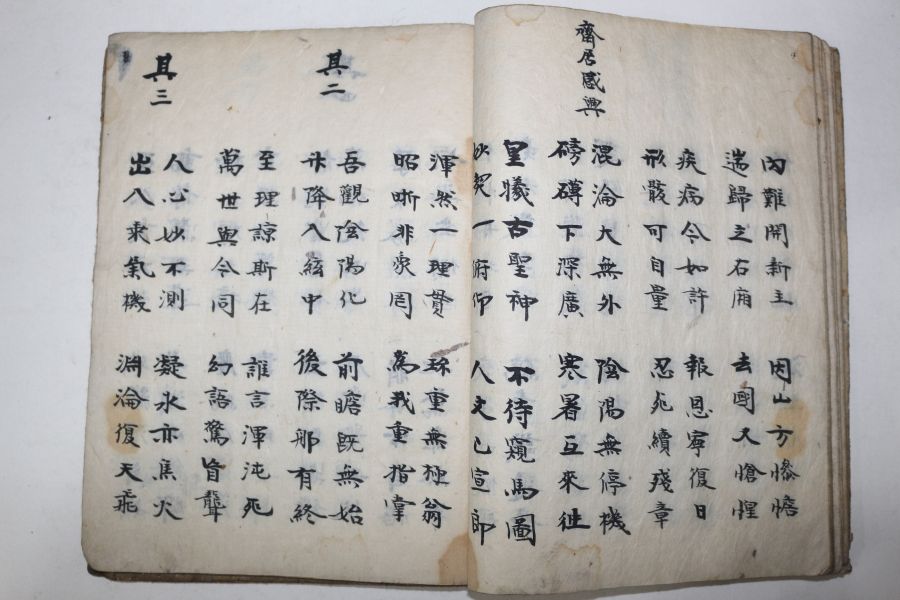 內難開新主 因山方慘憺
遄歸之右廂 去國又愴惶
疾病今如許 報恩寧復日
形骸可自量 忍死續殘章
齋居感興
混淪大無外 陰陽無停機
磅礴下深廣 寒暑互來徃
皇犧古聖神 不待窺馬圖
妙契一俯仰 人文已宣朗
渾然一理貫 珎重無極翁
昭晣非象罔 爲我重指掌
其二
吾觀陰陽化 前瞻旣無始
升降八紘中 後際那有終
至理諒斯在 誰言渾沌死
萬世與今同 幻語驚盲聾
其三
人心妙不測 凝氷亦焦火
出入乘氣機 淵淪復天飛